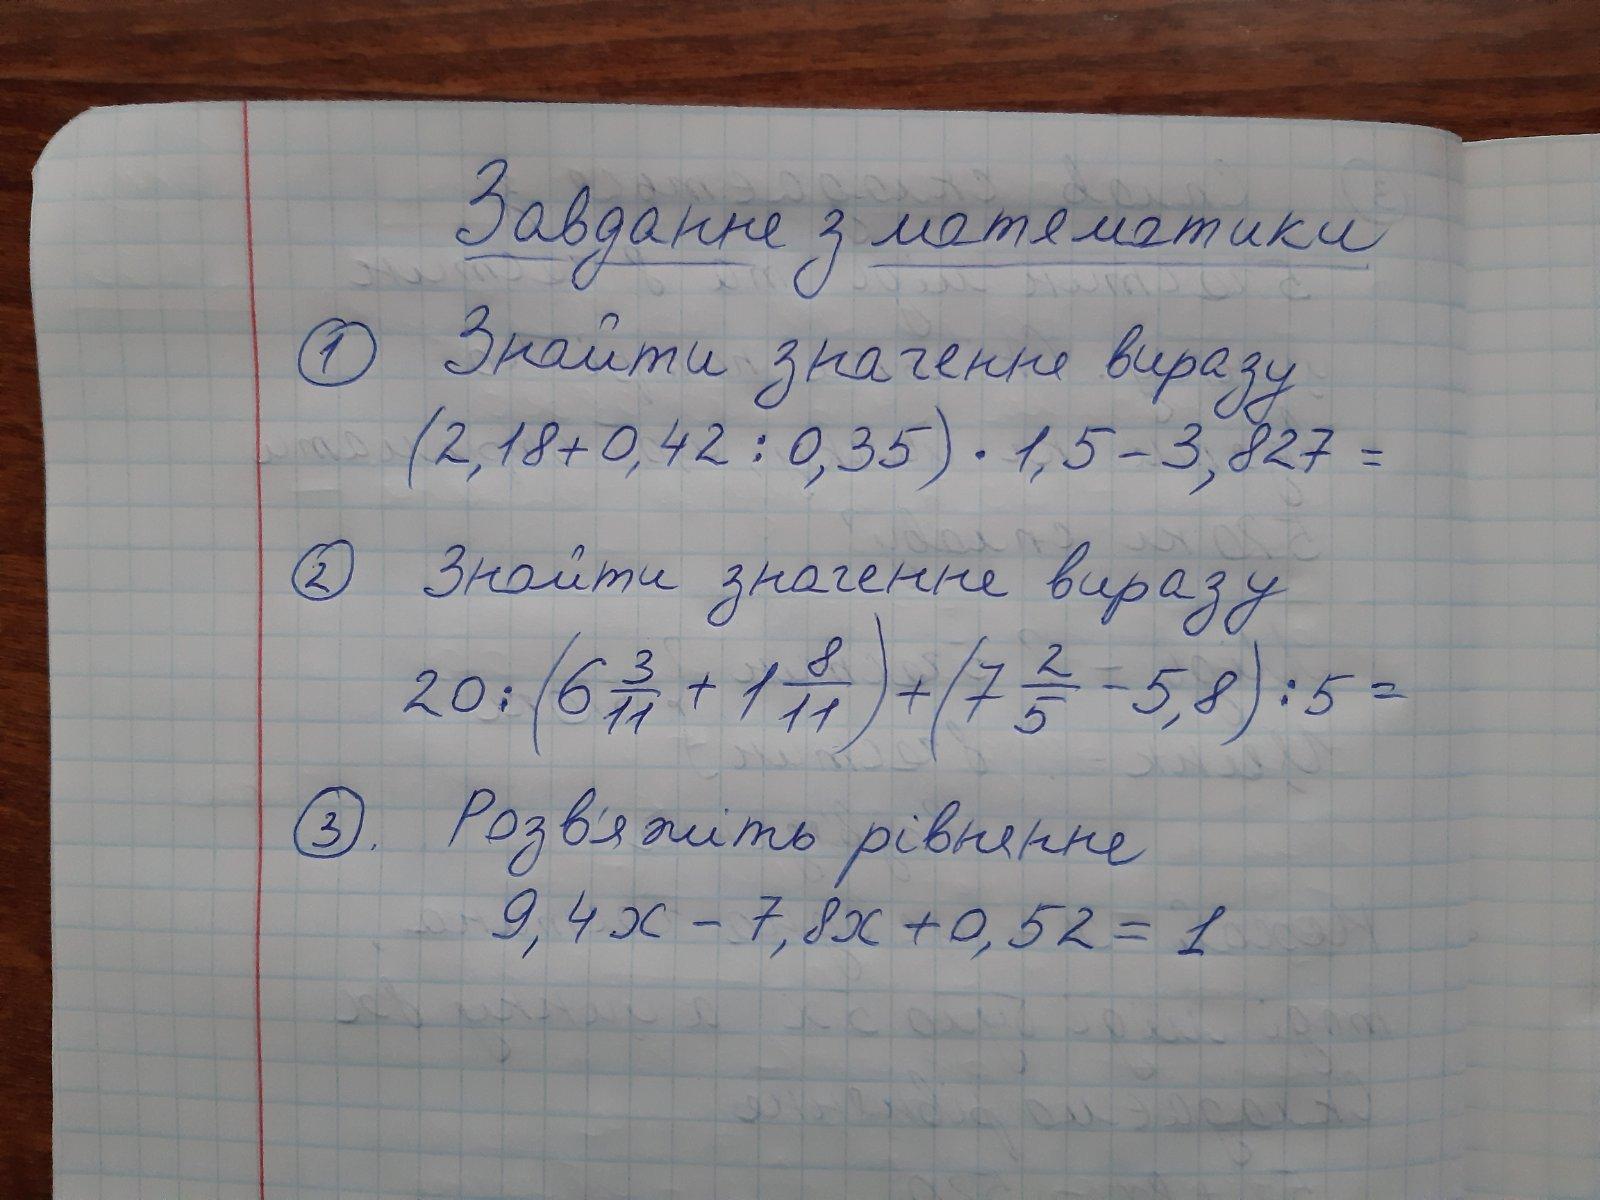 Завдання з математики
① Знайти значення виразу
(2,18+0,42:0,35)·1,5-3,827=
② Знайти значення виразу
20:(6 3/11 + 1 8/11)+(7 2/5 - 5,8):5=
③. Розв'яжіть рівняння
9,4x - 7,8x + 0,52 = 1